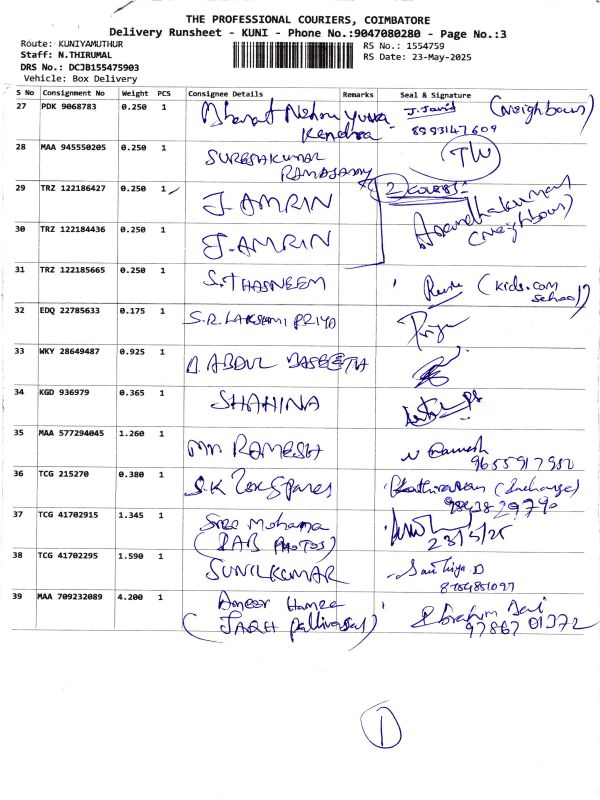 THE PROFESSIONAL COURIERS, COIMBATORE
Delivery Runsheet - KUNI - Phone No.:9047080280 - Page No.:3
Route: KUNIYAMUTHUR
RS No.: 1554759
Staff: N.THIRUMAL
RS Date: 23-May-2025
DRS No.: DCJB155475903
Vehicle: Box Delivery
S No Consignment No Weight PCS Consignee Details Remarks Seal & Signature
27 PDK 9068783 0.250 1 Bharat Nehru Yuva J. Javid (Neighbour)
Kendra 8593147609
28 MAA 945550205 0.250 1 SURESHKUMAR TW
RAMASAMY
29 TRZ 122186427 0.250 1 J. AMRIN 2 covers
Anandhakumar
(Neighbour)
30 TRZ 122184436 0.250 1 J. AMRIN
31 TRZ 122185665 0.250 1 S. THASNEEM (kids.com
school)
32 EDQ 22785633 0.175 1 S.R. LAKSHMI PRIYA Priya
33 WKY 28649487 0.925 1 ABDUL BASEETH
34 KGD 936979 0.365 1 SHAHINA
35 MAA 577294045 1.260 1 RAMESH Ramesh
9655917952
36 TCG 215270 0.380 1 S.K Tex Spares Kathiravan (Incharge)
9843829790
37 TCG 41702915 1.345 1 Sree Mohana
(LAB PHOTOS) 23/5/25
38 TCG 41702295 1.590 1 SUNILKUMAR Santhiya D
8754851097
39 MAA 709232089 4.200 1 Ameer Hamza Ibrahim
(JAQH Pallivasal) 97867 01372
1